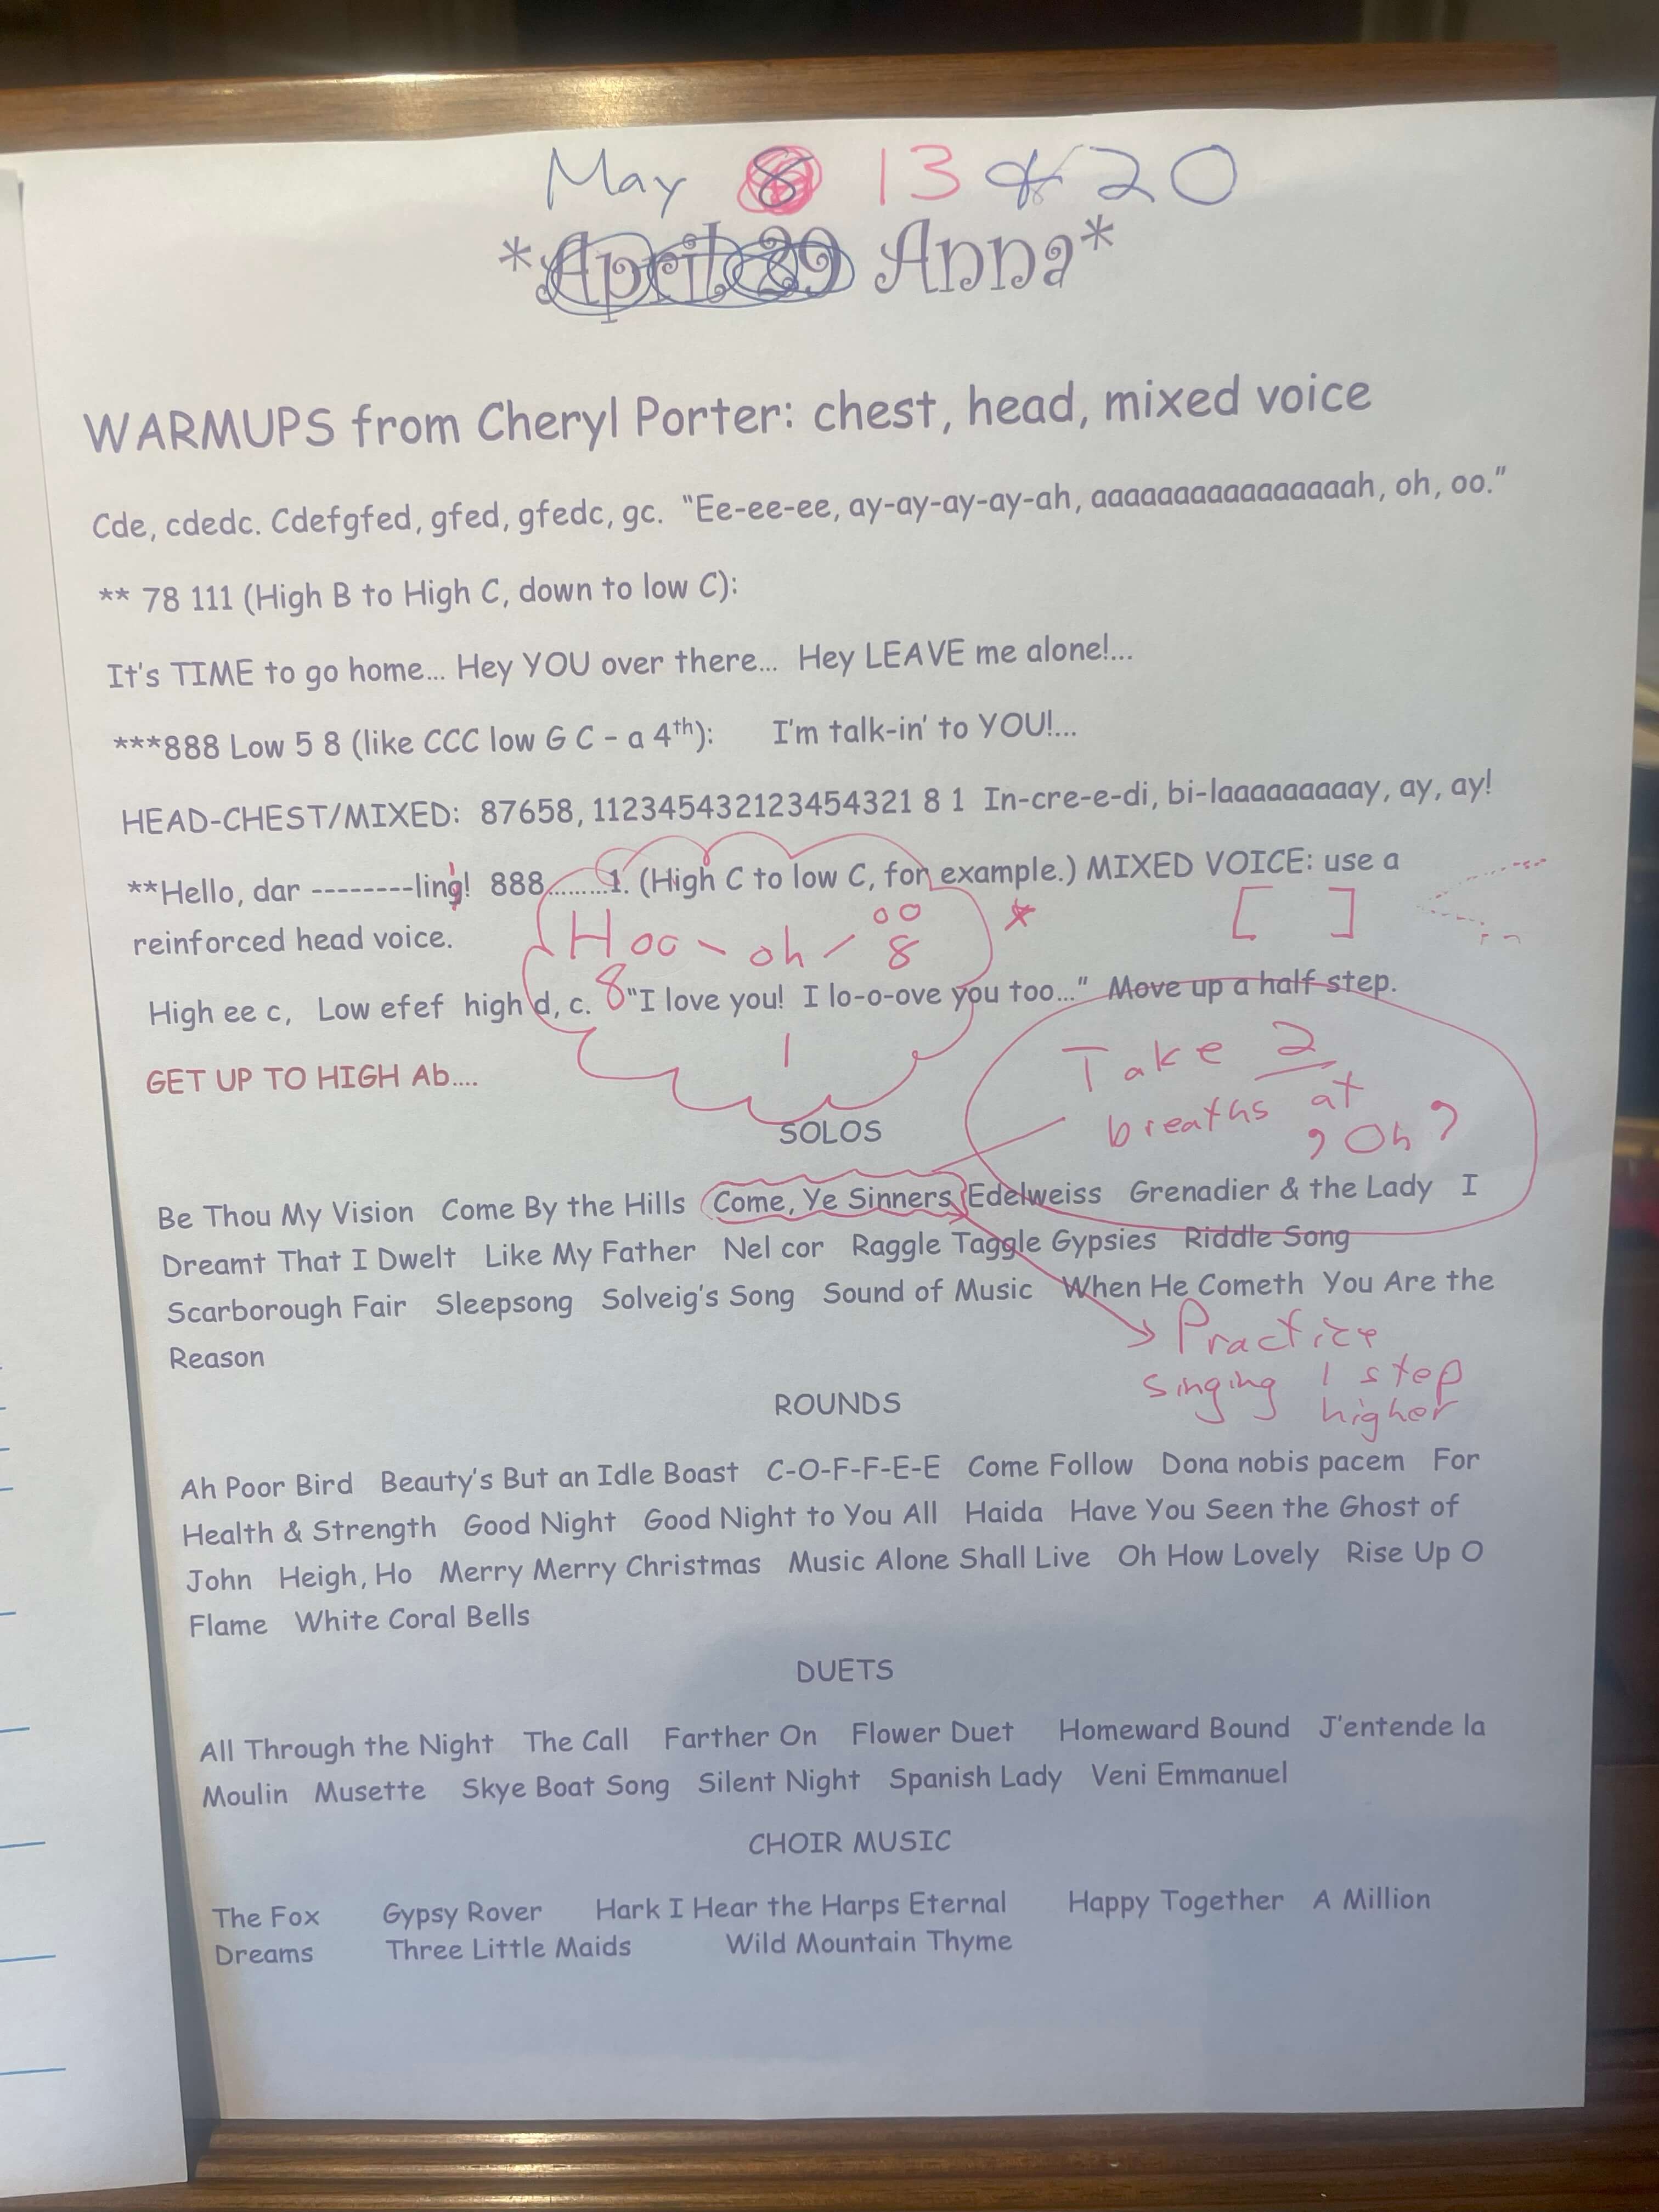 May 8 13 & 20
*April 29 Anna*
WARMUPS from Cheryl Porter: chest, head, mixed voice
Cde, cdedc. Cdefgfed, gfed, gfedc, gc. "Ee-ee-ee, ay-ay-ay-ay-ah, aaaaaaaaaaaaaaaah, oh, oo."
** 78 111 (High B to High C, down to low C):
It's TIME to go home... Hey YOU over there... Hey LEAVE me alone!...
***888 Low 5 8 (like CCC low G C - a 4th): I'm talk-in' to YOU!...
HEAD-CHEST/MIXED: 87658, 112345432123454321 8 1 In-cre-e-di, bi-laaaaaaaaay, ay, ay!
**Hello, dar --------ling! 888.........1. (High C to low C, for example.) MIXED VOICE: use a
reinforced head voice.
Hoo - oh - oo
8
[ ]
High ee c, Low efef high d, c. "I love you! I lo-o-ove you too..." Move up a half step.
8
1
GET UP TO HIGH Ab....
Take 2
breaths at
, Oh ,
SOLOS
Be Thou My Vision Come By the Hills Come, Ye Sinners Edelweiss Grenadier & the Lady I
Dreamt That I Dwelt Like My Father Nel cor Raggle Taggle Gypsies Riddle Song
Scarborough Fair Sleepsong Solveig's Song Sound of Music When He Cometh You Are the
Reason
Practice
singing 1 step
higher
ROUNDS
Ah Poor Bird Beauty's But an Idle Boast C-O-F-F-E-E Come Follow Dona nobis pacem For
Health & Strength Good Night Good Night to You All Haida Have You Seen the Ghost of
John Heigh, Ho Merry Merry Christmas Music Alone Shall Live Oh How Lovely Rise Up O
Flame White Coral Bells
DUETS
All Through the Night The Call Farther On Flower Duet Homeward Bound J'entende la
Moulin Musette Skye Boat Song Silent Night Spanish Lady Veni Emmanuel
CHOIR MUSIC
The Fox Gypsy Rover Hark I Hear the Harps Eternal Happy Together A Million
Dreams Three Little Maids Wild Mountain Thyme